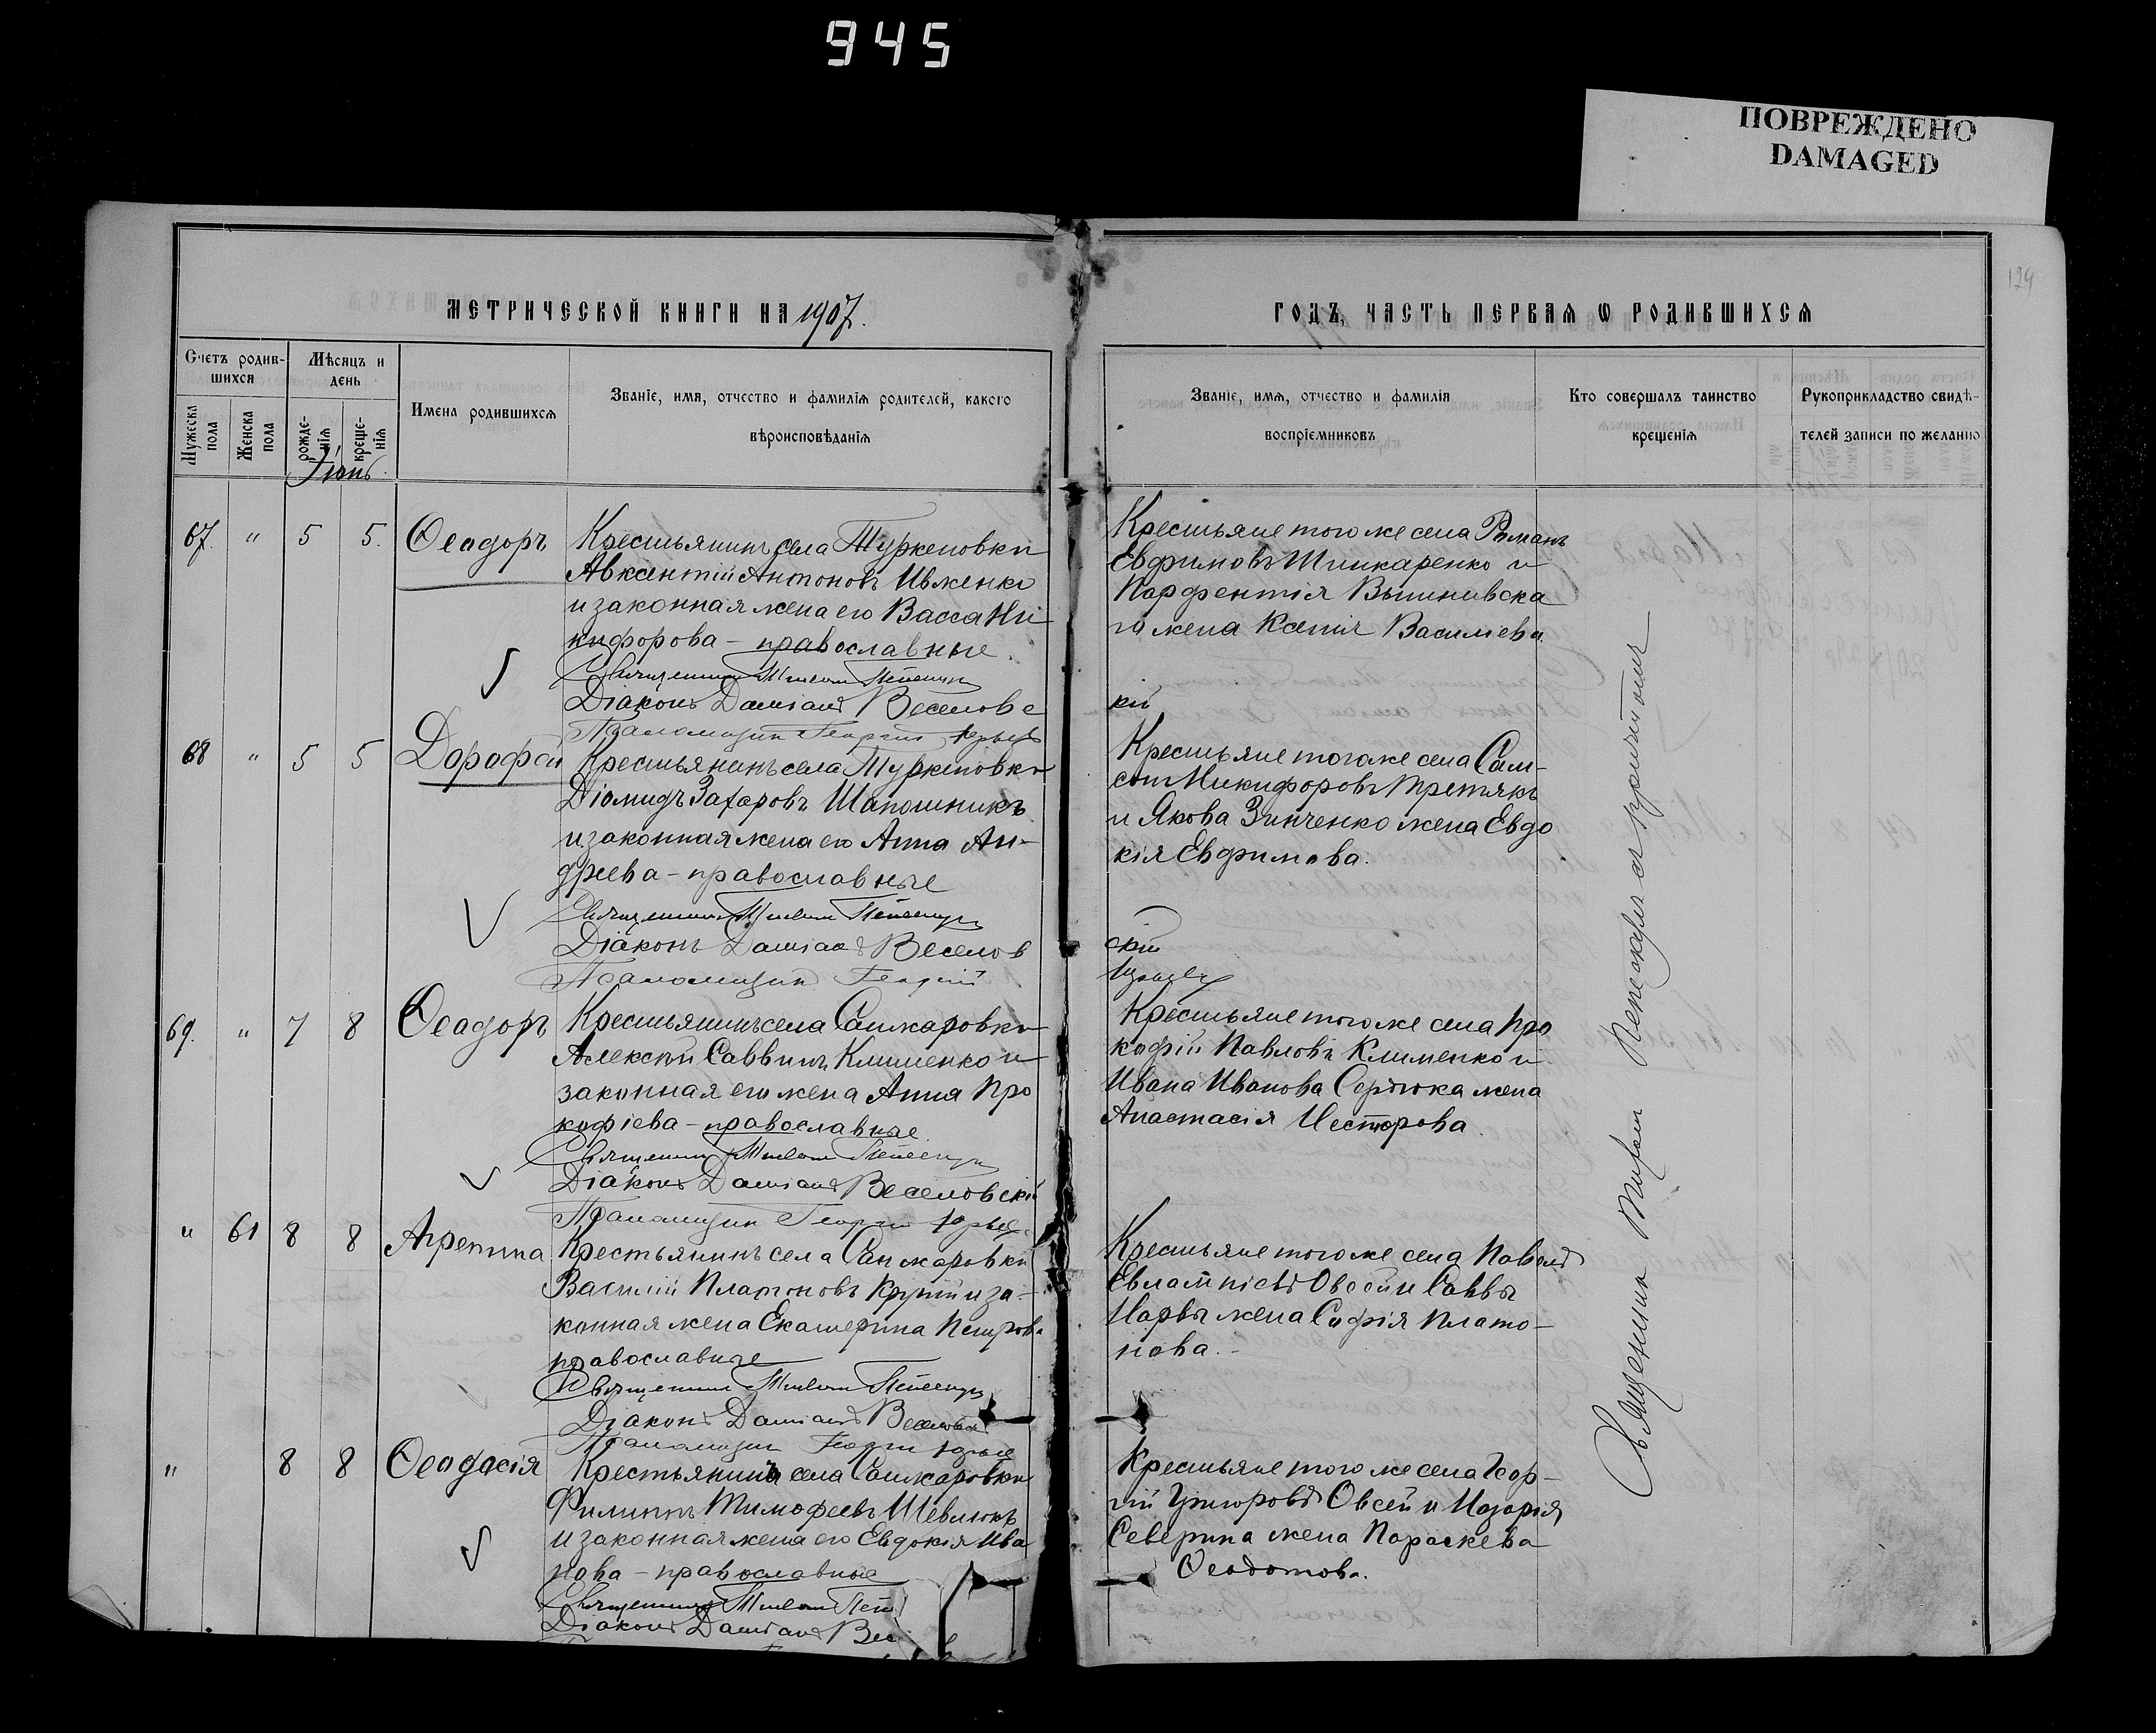 945
ПОВРЕЖДЕНО
DAMAGED
129
МЕТРИЧЕСКОЙ КНИГИ НА 1907.
ГОДЪ, ЧАСТЬ ПЕРВАЯ Ѡ РОДИВШИХСѦ
Счетъ родив-
шихся
Мѣсяцъ и
день
Мужеска
пола
Женска
пола
рожде-
нія
креще-
нія
Имена родившихсѧ
Званіе, имя, отчество и фамиліѧ родителей, какого
вѣроисповѣданіѧ
Званіе, имѧ, отчество и фамилія
воспріемниковъ
Кто совершалъ таинство
крещеніѧ
Рукоприкладство свидѣ-
телей записи по желанію
Іюнь.
67. " 5 5. Ѳеодоръ
Крестьянинъ села Туркеновки
Авксентій Антоновъ Ивженко
и законная жена его Васса Ни
кифорова - православные.
Діаконъ Даміанъ Веселовс
Крестьяне того же села Романъ
Евфимовъ Шинкаренко и
Парфентія
го жена Ксенія Василіева.
кій
68 " 5 5 Дорофей
Крестьянинъ села Туркеновки
Діомидъ Захаровъ Шапошникъ
и законная жена его Анна Ан-
дреева - православные
Діаконъ Даміанъ Веселов
Псаломщикъ Георгій
Крестьяне того же села Сам-
сонъ Никифоровъ Третякъ
и Якова Зинченко жена Евдо
кія Евфимова.
скій
69. " 7 8 Ѳеодоръ
Крестьянинъ села Санжаровки
Алексѣй Саввинъ Клименко и
законная его жена Анна Про
кофіева - православные.
Діаконъ Даміанъ Веселовскій
Псаломщикъ Георгій
Крестьяне того же села Про
кофій Павловъ Клименко и
Ивана Иванова Сердюка жена
Анастасія Несторова.
" 61 8 8 Агрепина
Крестьянинъ села Санжаровки
Василій Платоновъ Крутій и за-
конная жена Екатерина Петрова
православные
Діаконъ Даміанъ
Крестьяне того же села Павелъ
Евлампіевъ Овсѣй и Саввы
жена Софія Плато-
нова.-
" 8 8 Ѳеодосія
Крестьянинъ села Санжаровки
Филиппъ Тимофеевъ Шевлюкъ
и законная жена его Евдокія Ива
нова - православные
Діаконъ Даміанъ Ве
Крестьяне того же села Геор-
гій Григоровъ Овсей и Назарія
Северина жена Параскева
Ѳеодотова.
Священникъ